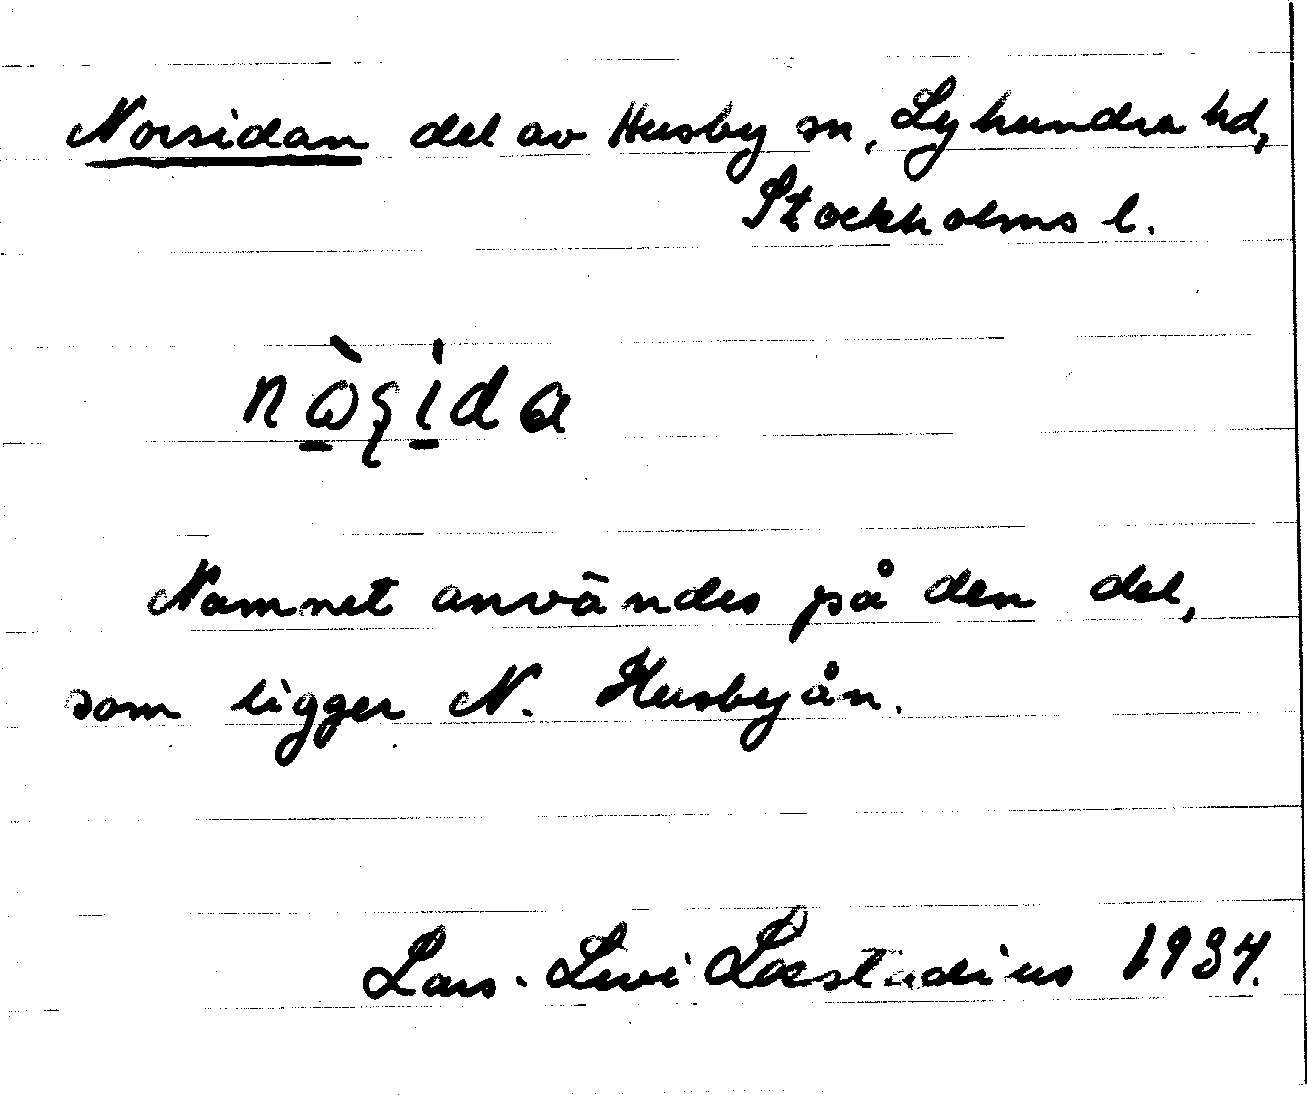 Norsidan del av Husby sn, Lyhundra hd,
Stockholms l.
nòʂida
Namnet användes på den del,
som ligger N. Husbyån.
Lars-Levi Læstadius 1934.